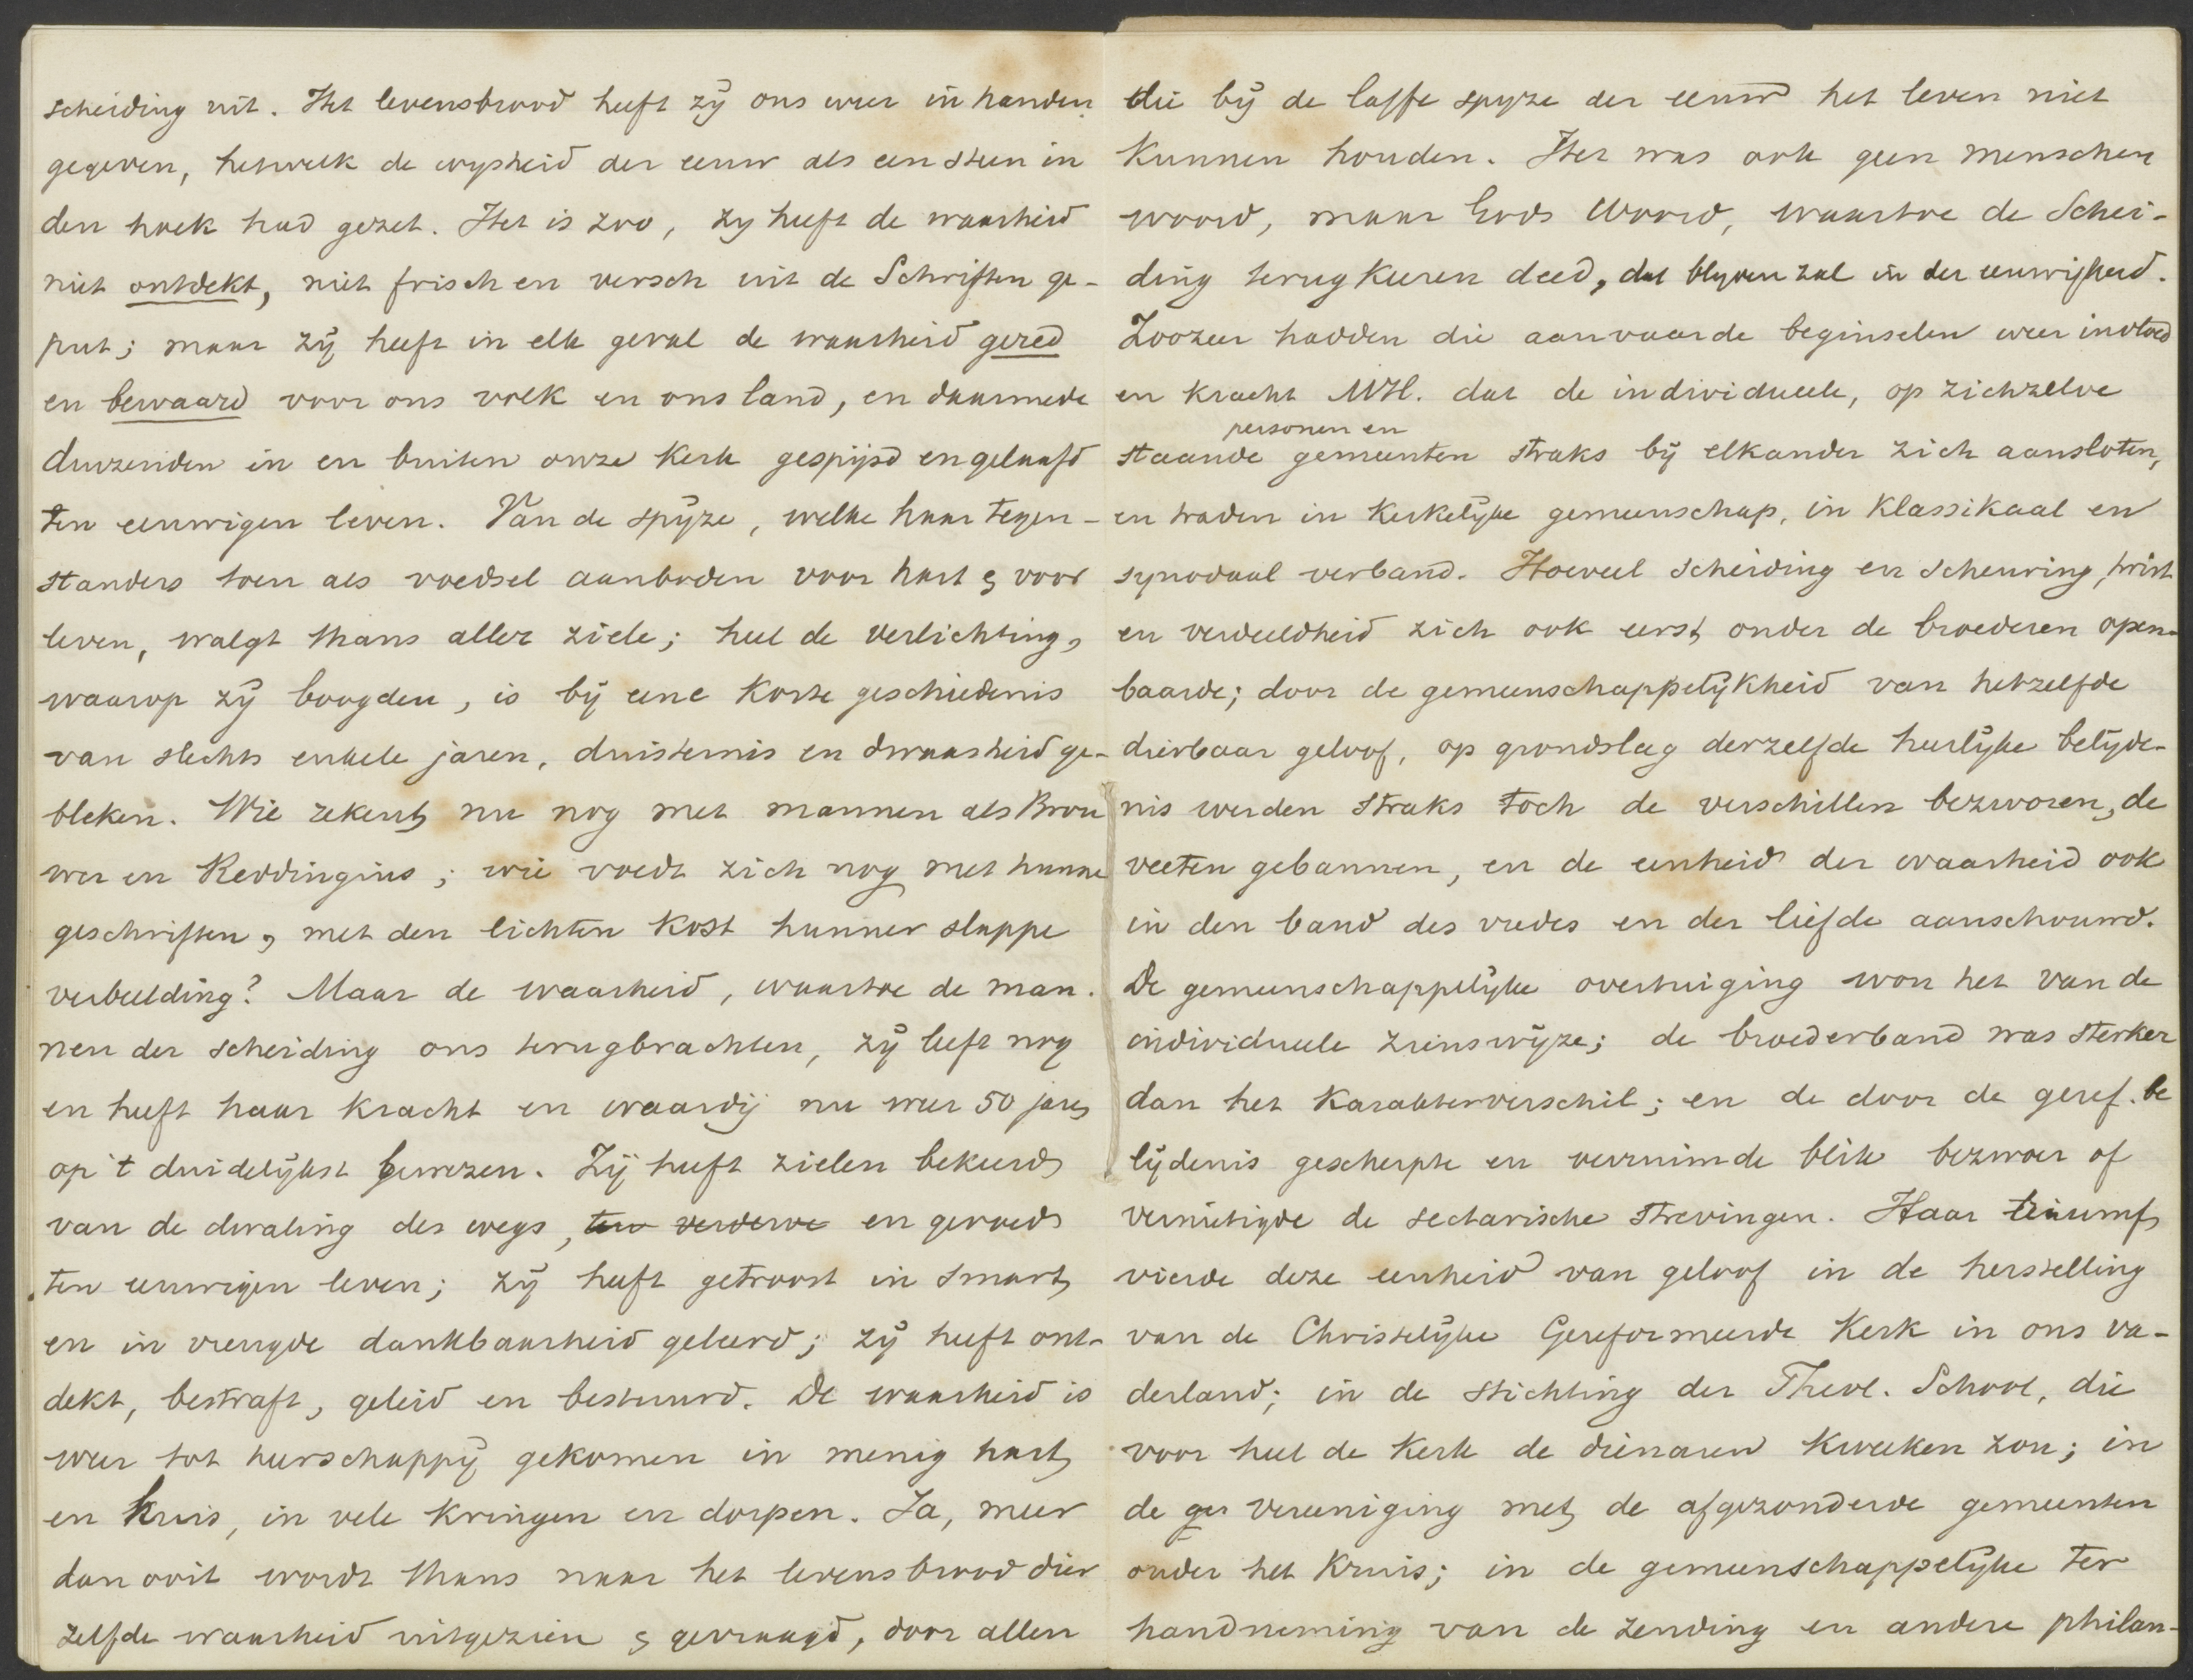 scheiding uit. Het levensbrood heeft zij ons weer in handen
gegeven, hetwelk de wijsheid der eeuw als een steen in
den hoek had gezet. Het is zoo, zij heeft de waarheid
niet ontdekt, niet frisch en versch uit de Schriften ge-
put; maar zij heeft in elk geval de waarheid gered
en bewaard voor ons volk en ons land, en daarmede
duizenden in en buiten onze Kerk gespijsd en gelaafd
ten eeuwigen leven. Van de spijze, welke haar tegen-
standers toen als voedsel aanboden voor hart & voor
leven, walgt thans aller ziele; heel de verlichting,
waarop zij boogden, is bij eene korte geschiedenis
van slechts enkele jaren, duisternis en dwaasheid ge-
bleken. Wie rekent nu nog met mannen als Brou
wer en Reddingius; wie voedt zich nog met hunne
geschriften, met den lichten kost hunner slappe
verbeelding? Maar de waarheid, waartoe de man-
nen der scheiding ons terugbrachten, zij leeft nog
en heeft haar kracht en waardij nu weer 50 jaren
op 't duidelijkst bewezen. Zij heeft zielen bekeerd
van de dwaling des wegs, ten verderve en gevoed
ten eeuwigen leven; zij heeft getroost in smart
en in vreugde dankbaarheid geleerd; zij heeft ont-
dekt, bestraft, geleid en bestuurd. De waarheid is
weer tot heerschappij gekomen in menig hart
en huis, in vele kringen en dorpen. Ja, meer
dan ooit wordt thans naar het levensbrood dier
zelfde waarheid uitgezien & gevraagd, door allen
die bij de laffe spijze der eeuw het leven niet
kunnen houden. Het was ook geen menschen
woord, maar Gods Woord, waartoe de Schei-
ding terugkeeren deed, dat blijven zal in der eeuwigheid.
Zoozeer hadden die aanvaarde beginselen weer invloed
en kracht MH. dat de individueele, op zichzelve
personen en
staande gemeenten straks bij elkander zich aansloten,
en traden in kerkelijke gemeenschap, in klassikaal en
synodaal verband. Hoeveel scheiding en scheuring, twist
en verdeeldheid zich ook eerst onder de broederen open-
baarde; door de gemeenschappelijkheid van hetzelfde
dierbaar geloof, op grondslag derzelfde heerlijke belijde-
nis werden straks toch de verschillen bezworen, de
veeten gebannen, en de eenheid der waarheid ook
in den band des vredes en der liefde aanschouwd.
De gemeenschappelijke overtuiging won het van de
individueele zienswijze; de broederband was sterker
dan het karakterverschil; en de door de geref. be
lijdenis gescherpte en verruimde blik bezwoer of
vernietigde de sectarische strevingen. Haar triumf
vierde deze eenheid van geloof in de herstelling
van de Christelijke Gereformeerde Kerk in ons va-
derland; in de stichting der Theol. School, die
voor heel de Kerk de dienaren kweeken zou; in
de ger vereeniging met de afgezonderde gemeenten
onder het Kruis; in de gemeenschappelijke ter
handneming van de zending en andere philan-